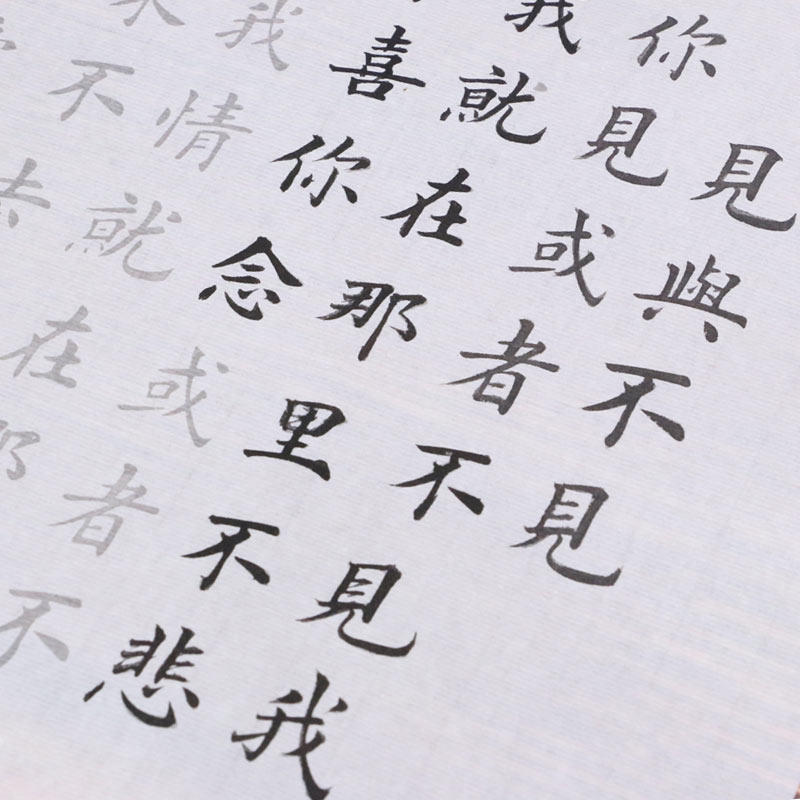 見與不見
你見或者不見我
我就在那里不悲
喜你念或者不
我情就在那
不去